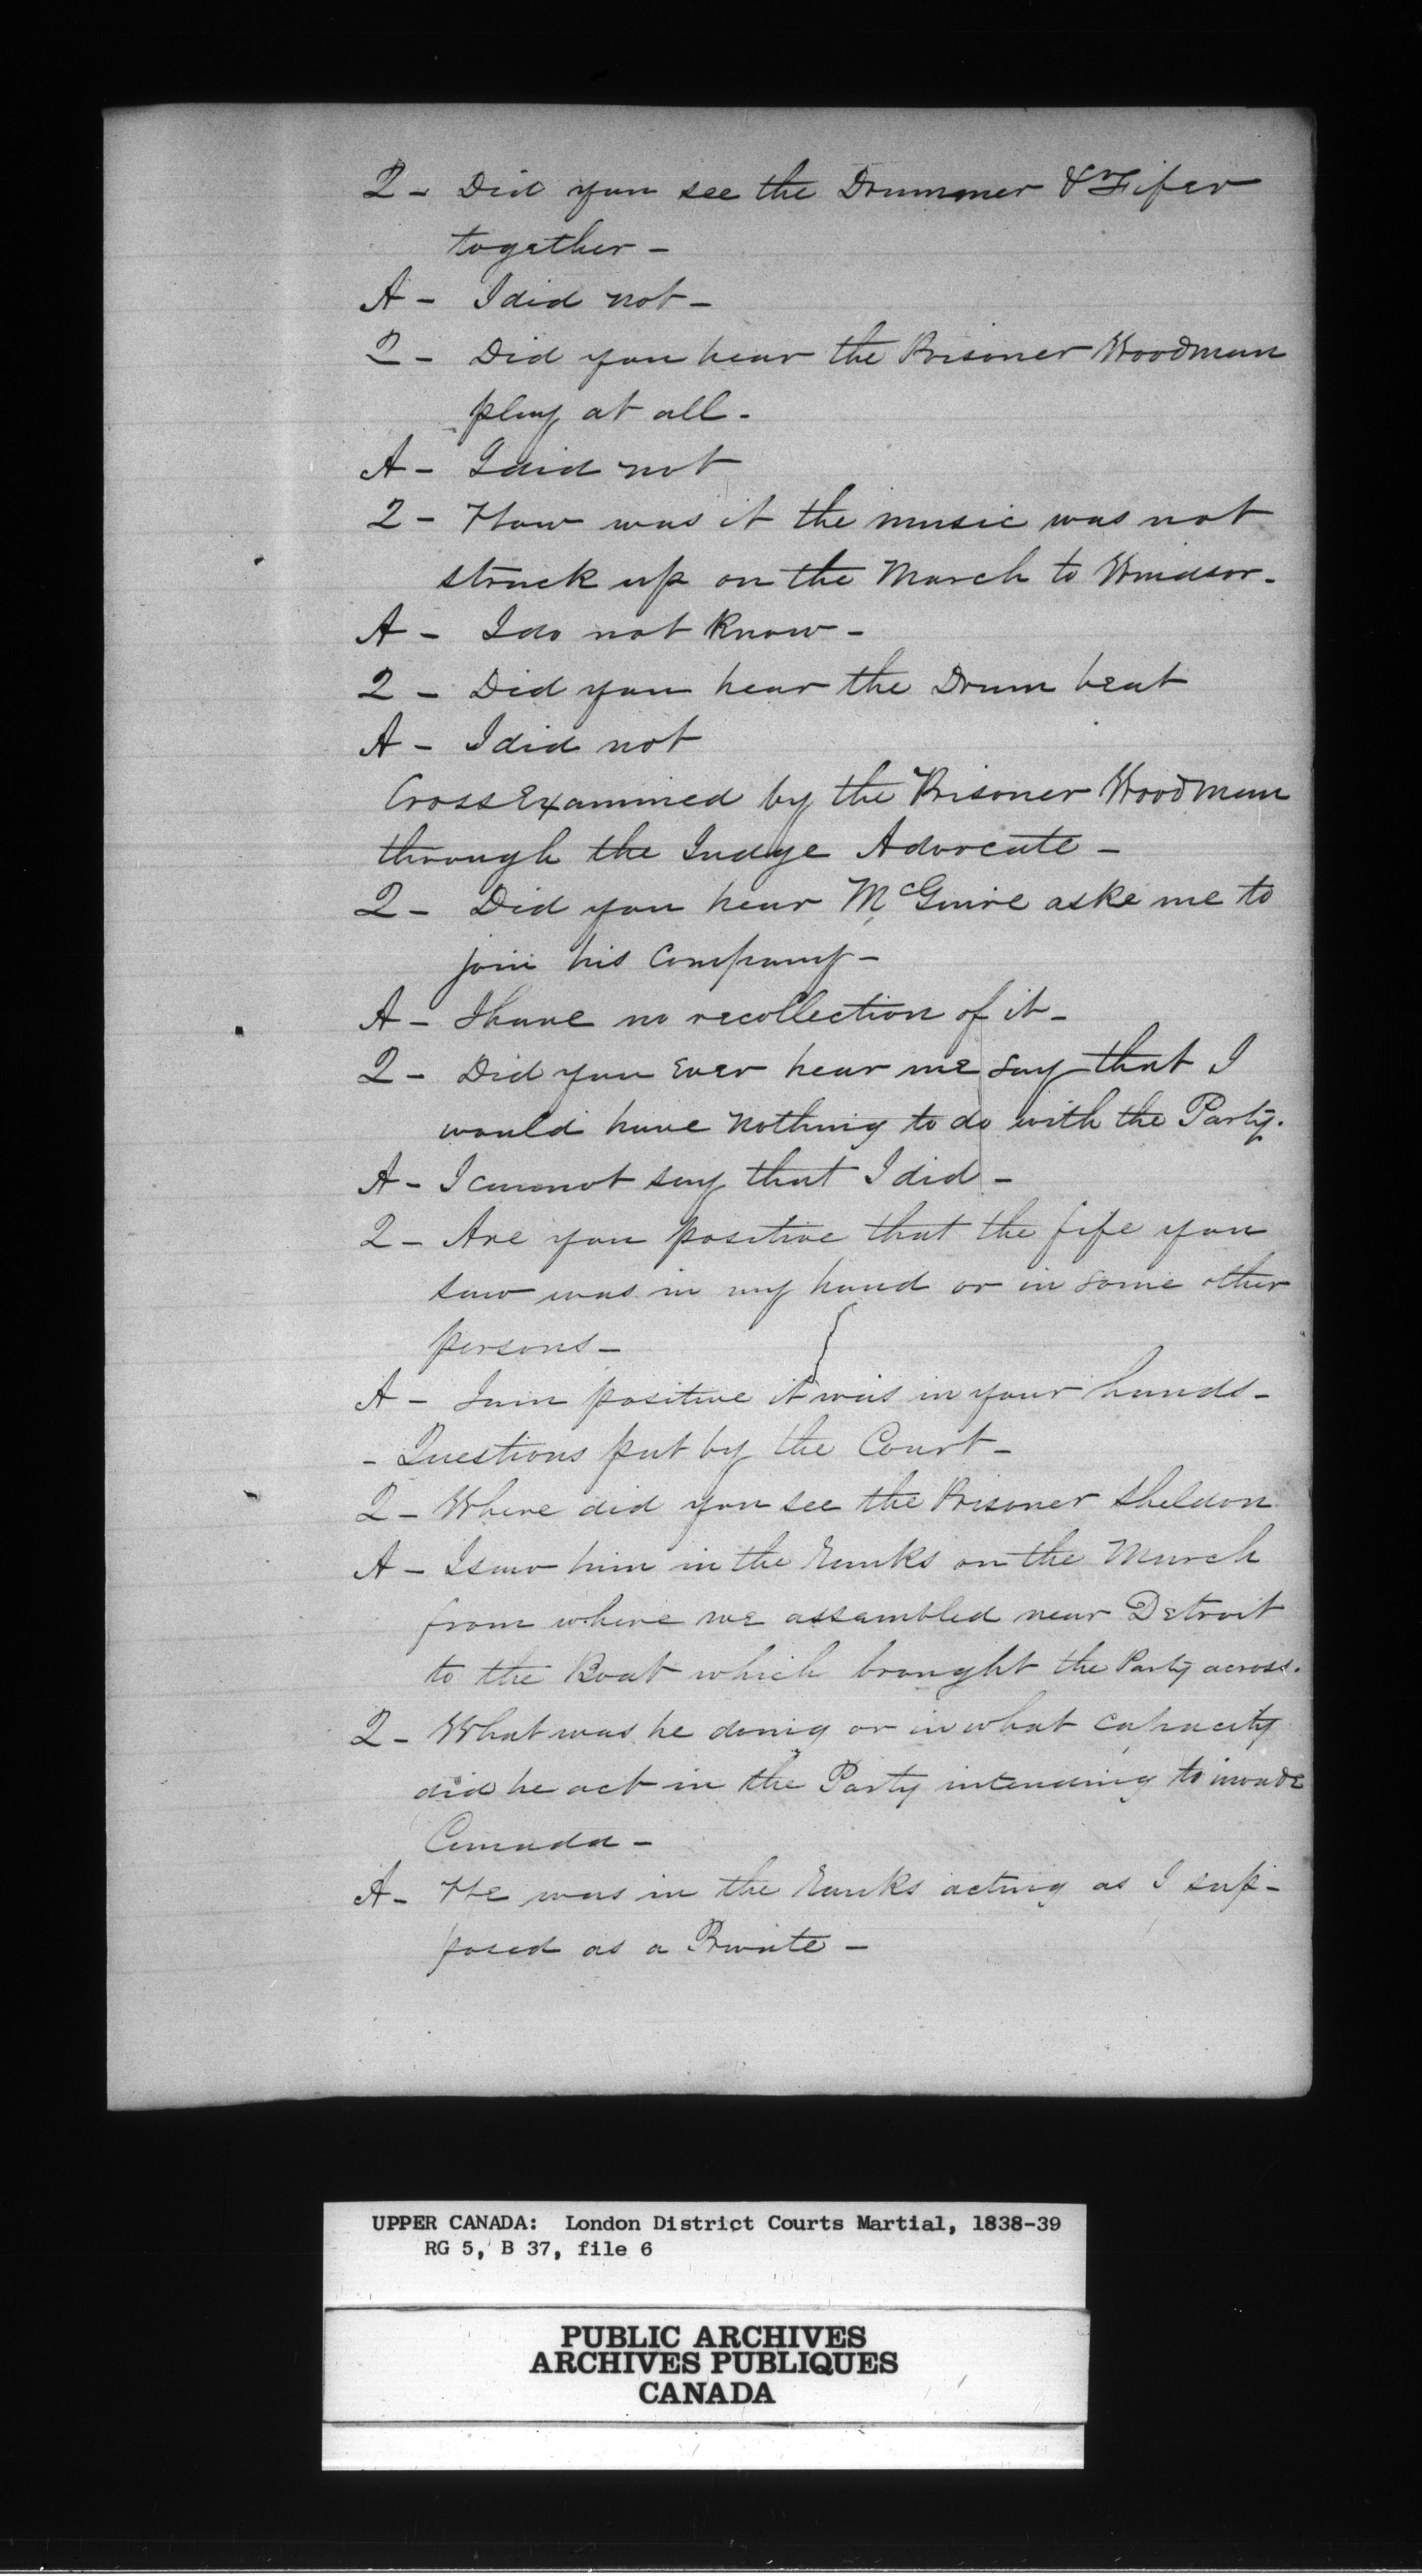 Q - Did you see the Drummer & Fifer
together -
A - I did not -
Q - Did you hear the Prisoner Woodman
play at all -
A - I did not
Q - How was it the music was not
struck up on the March to Windsor -
A - I do not know -
Q - Did you hear the Drum beat
A - I did not
Cross Examined by the Prisoner Woodman
through the Judge Advocate -
Q - Did you hear McGuire aske me to
join his Company -
A - I have no recollection of it -
Q - Did you ever hear me say that I
would have nothing to do with the Party.
A - I cannot say that I did -
Q - Are you positive that the fife you
saw was in my hand or in some other
persons -
A - I am positive it was in your hands -
- Questions put by the Court -
Q - Where did you see the Prisoner Sheldon
A - I saw him in the Ranks on the March
from where we assembled near Detroit
to the Boat which brought the Party across.
Q - What was he doing or in what capacity
did he act in the Party intending to invade
Canada -
A - He was in the Ranks acting as I sup-
posed as a Private -
UPPER CANADA: London District Courts Martial, 1838-39
RG 5, B 37, file 6
PUBLIC ARCHIVES
ARCHIVES PUBLIQUES
CANADA